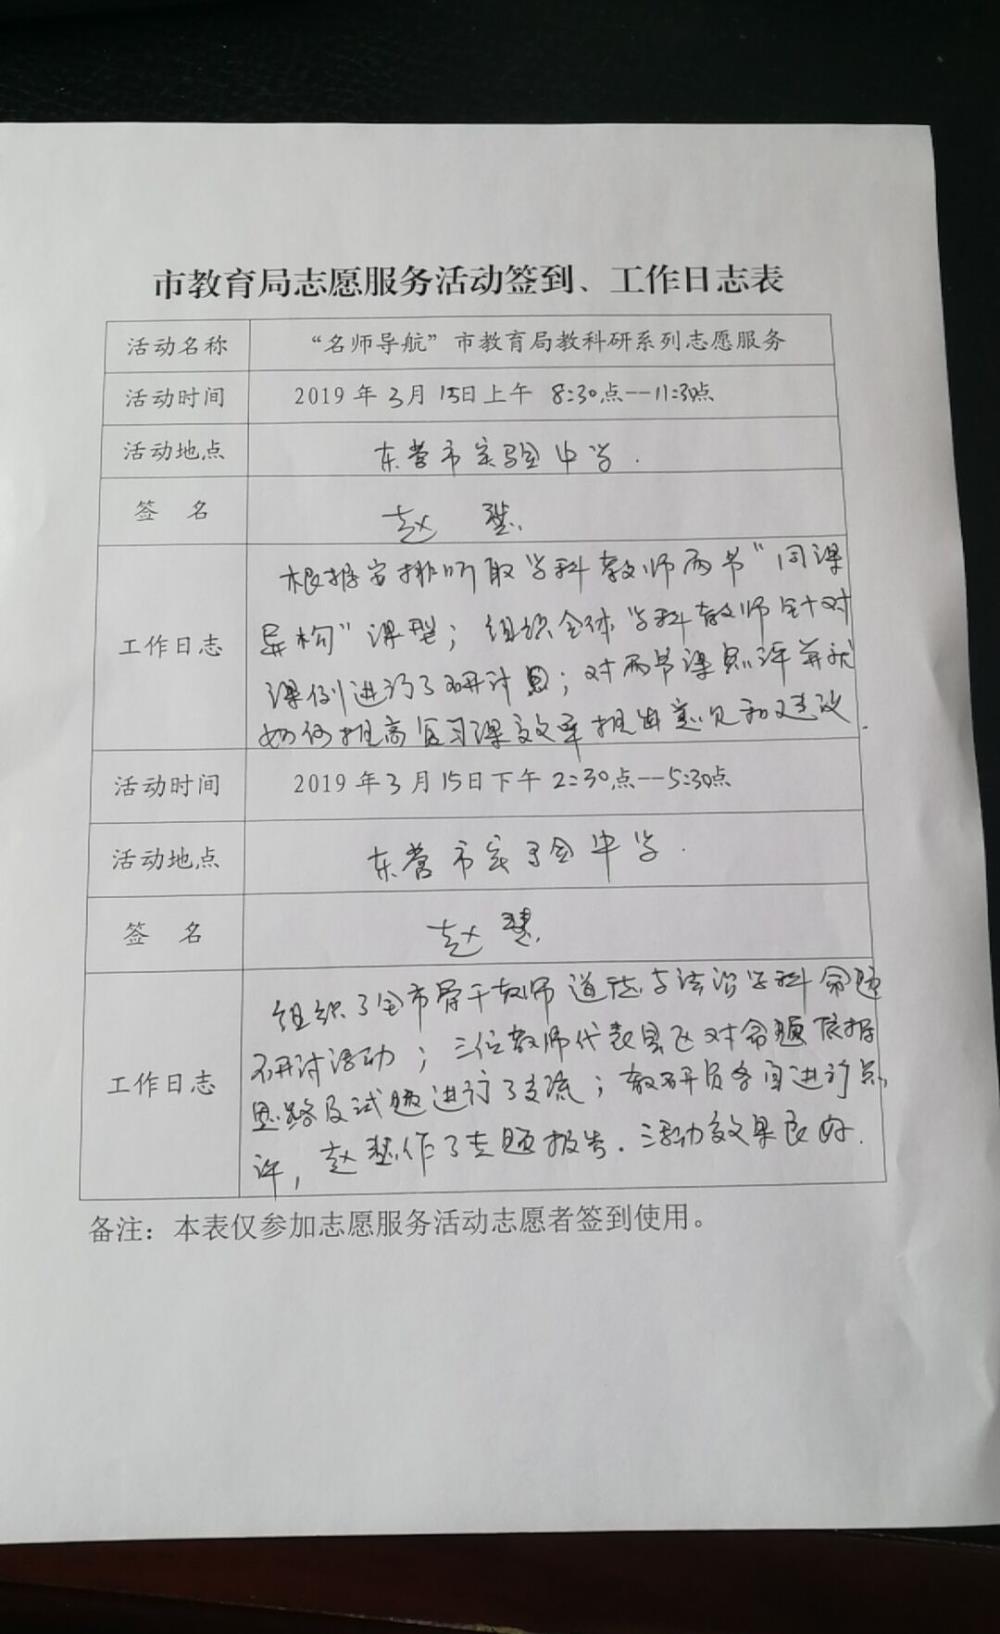 市教育局志愿服务活动签到、工作日志表
活动名称 “名师导航”市教育局教科研系列志愿服务
活动时间 2019年3月15日上午 8:30点--11:30点
活动地点 东营市实验中学.
签 名 赵 慧
工作日志
根据安排听取学科教师两节“同课
异构”课型；组织全体学科教师针对
课例进行了研讨；对两节课点评并就
如何提高复习课效率提出意见和建议.
活动时间 2019年3月15日下午2:30点--5:30点
活动地点 东营市实验中学.
签 名 赵 慧
工作日志
组织了全市骨干教师道德与法治学科命题
研讨活动；三位教师代表县区对命题依据
思路及试题进行了交流；教研员各自进行点
评，赵慧作了专题报告.活动效果良好.
备注：本表仅参加志愿服务活动志愿者签到使用。